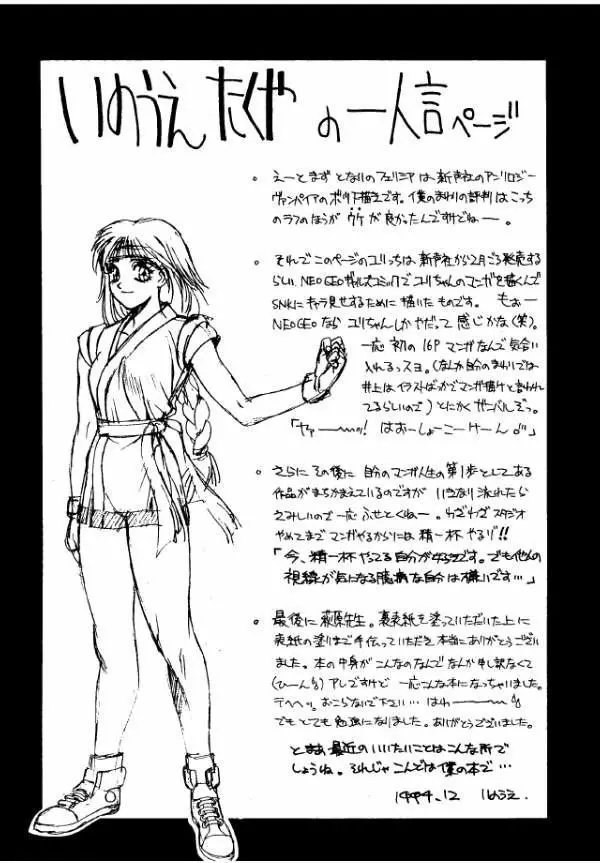 いのうえ たくや の 一人言ページ
。えーと まず となりのフェリシア は、新声社のアンソロジー
ヴァンパイアのボツ下描きです。僕のまわりの評判はこっち
のラフのほうが ウケ が良かったんですけどねー。
。それでこのページのユリっちは 新声社から2月ごろ発売する
らしい NEO GEOギャルズコミックで ユリちゃんのマンガを描くんで
SNKにキャラ見せするために描いたものです。 もぉー
NEOGEOなら ユリちゃんしかやだって感じかな(笑)。
一応 初の16Pマンガなんで気合い
入れるっスョ。(なんか自分のまわりでは
井上はイラストばっかでマンガ描けと言われ
てるらしいので) とにかくガーバルぞっ。
「ヤァー〜ッ! はおーしょーこーけーん。」
。さらに その後に 自分のマンガ人生の第1歩としてある
作品がまちかまえているのですが いきなり流れたら
さみしいので一応 ふせとくねー。わざわざスタジオ
やめてまで マンガやるからには 精一杯 やるゾ!!
「今、精一杯やってる自分が好きです。でも他人の
視線が気になる臆病な自分は嫌いです…」
。最後に 萩原先生。裏表紙を塗っていただいた上に
表紙の塗りまで手伝っていただき 本当にありがとうござい
ました。本の中身がこんなのなんで なんか申し訳なくて
(ひーん) アレですけど 一応こんな本になっちゃいました。
テヘヘッ。おこらないで下さい… はわー〜
でも とても 勉強になりました。ありがとうございました。
とまぁ 最近の いいたいことは こんな所で
しょうね。それじゃ こんどは 僕の本で…
1994.12 いのうえ.